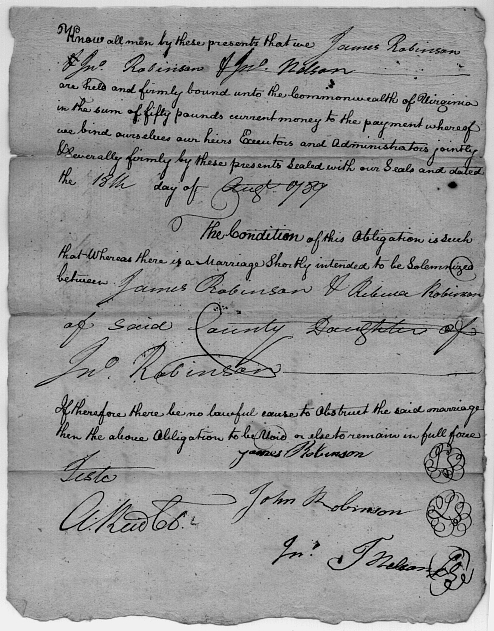 Know all men by these presents that we James Robinson
& Jno Robinson & Jno Nelson
are held and firmly bound unto the Commonwealth of Virginia
in the sum of fifty pounds current money to the payment whereof
we bind ourselves our heirs Executors and Administrators jointly
& severally firmly by these presents Sealed with our Seals and dated
the 18th day of Augt. 1789
The Condition of this Obligation is such
that Whereas there is a Marriage Shortly intended to be Solemnized
between James Robinson & Rebecca Robinson
of said County Daughter of
Jno. Robinson
If therefore there be no lawful cause to Obstruct the said marriage
then the above Obligation to be Void or else to remain in full force
James Robinson
Teste
John Robinson
A. Reid
Jno. Nelson